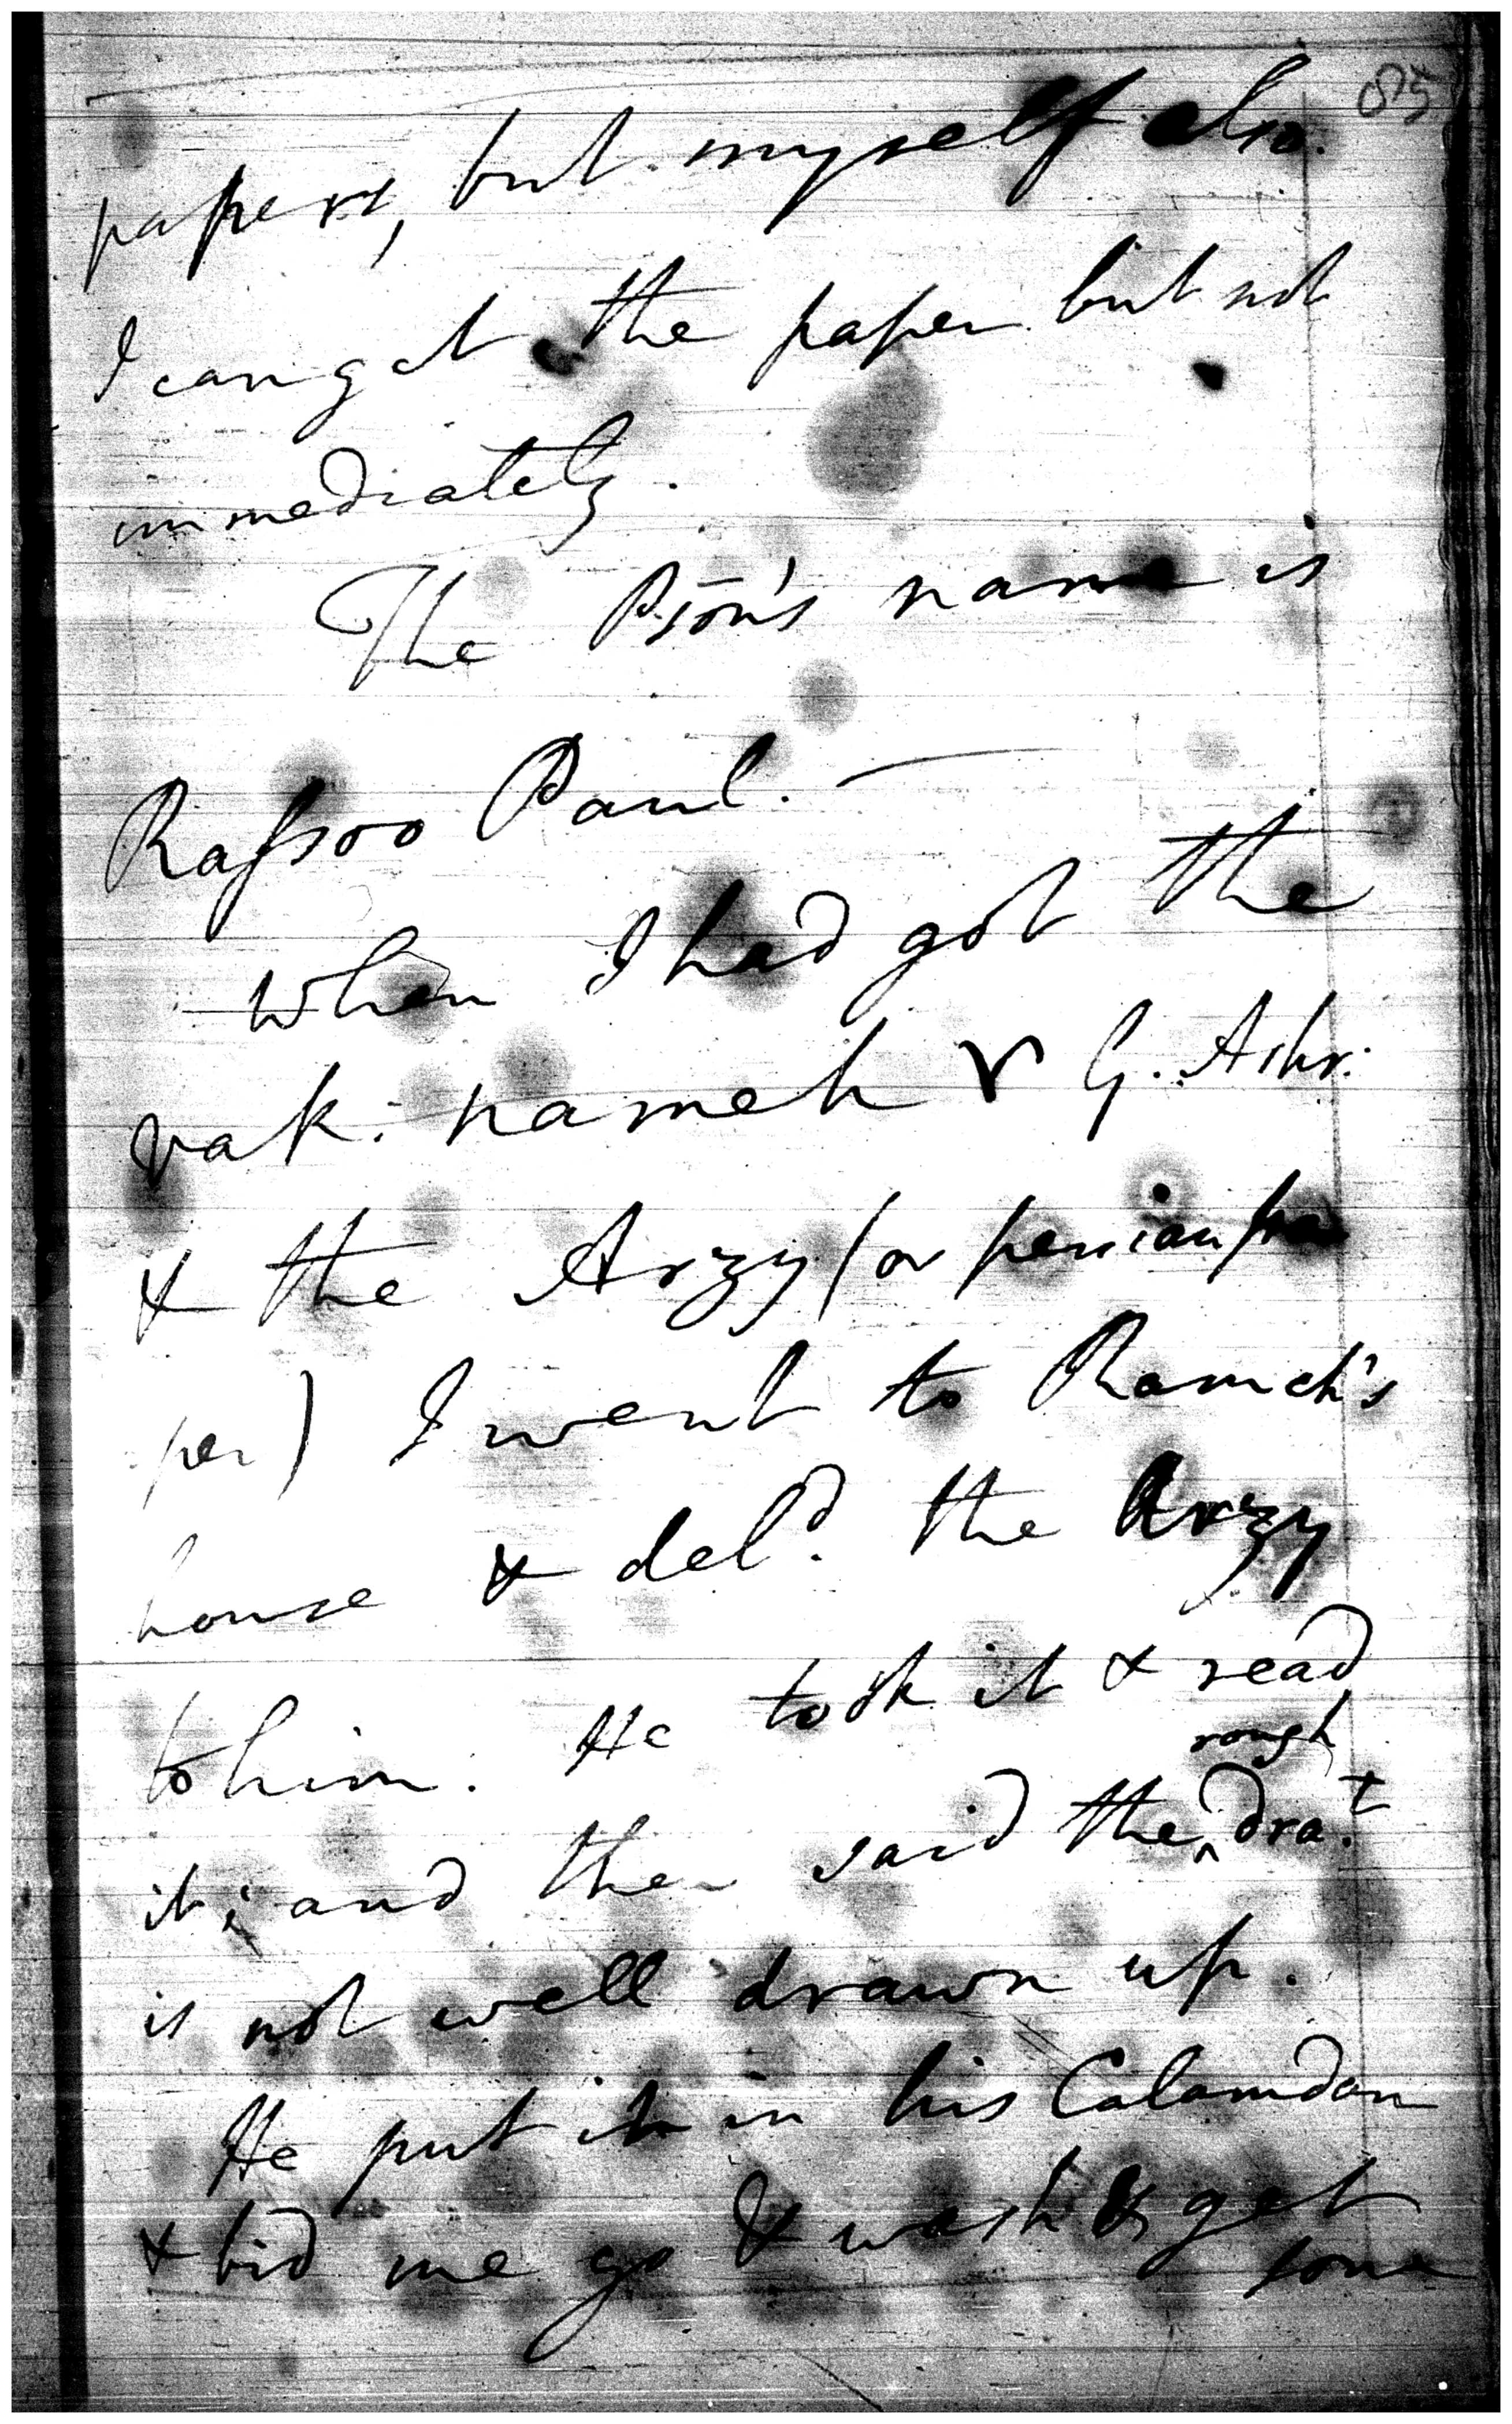 85
papers, but myself also.
I can get the paper but not
immediately.
The Pson's name is
Rassoo Paul. —
When I had got the
vak: nameh r G. Ashr:
& the Arzy (or persian pa
per) I went to Rameh's
house & deld. the Arzy
to him. He took it & read
rough
it; and then said the ^ drat.
is not well drawn up.
He put it in his Calamdan
& bid me go & wash & get
some